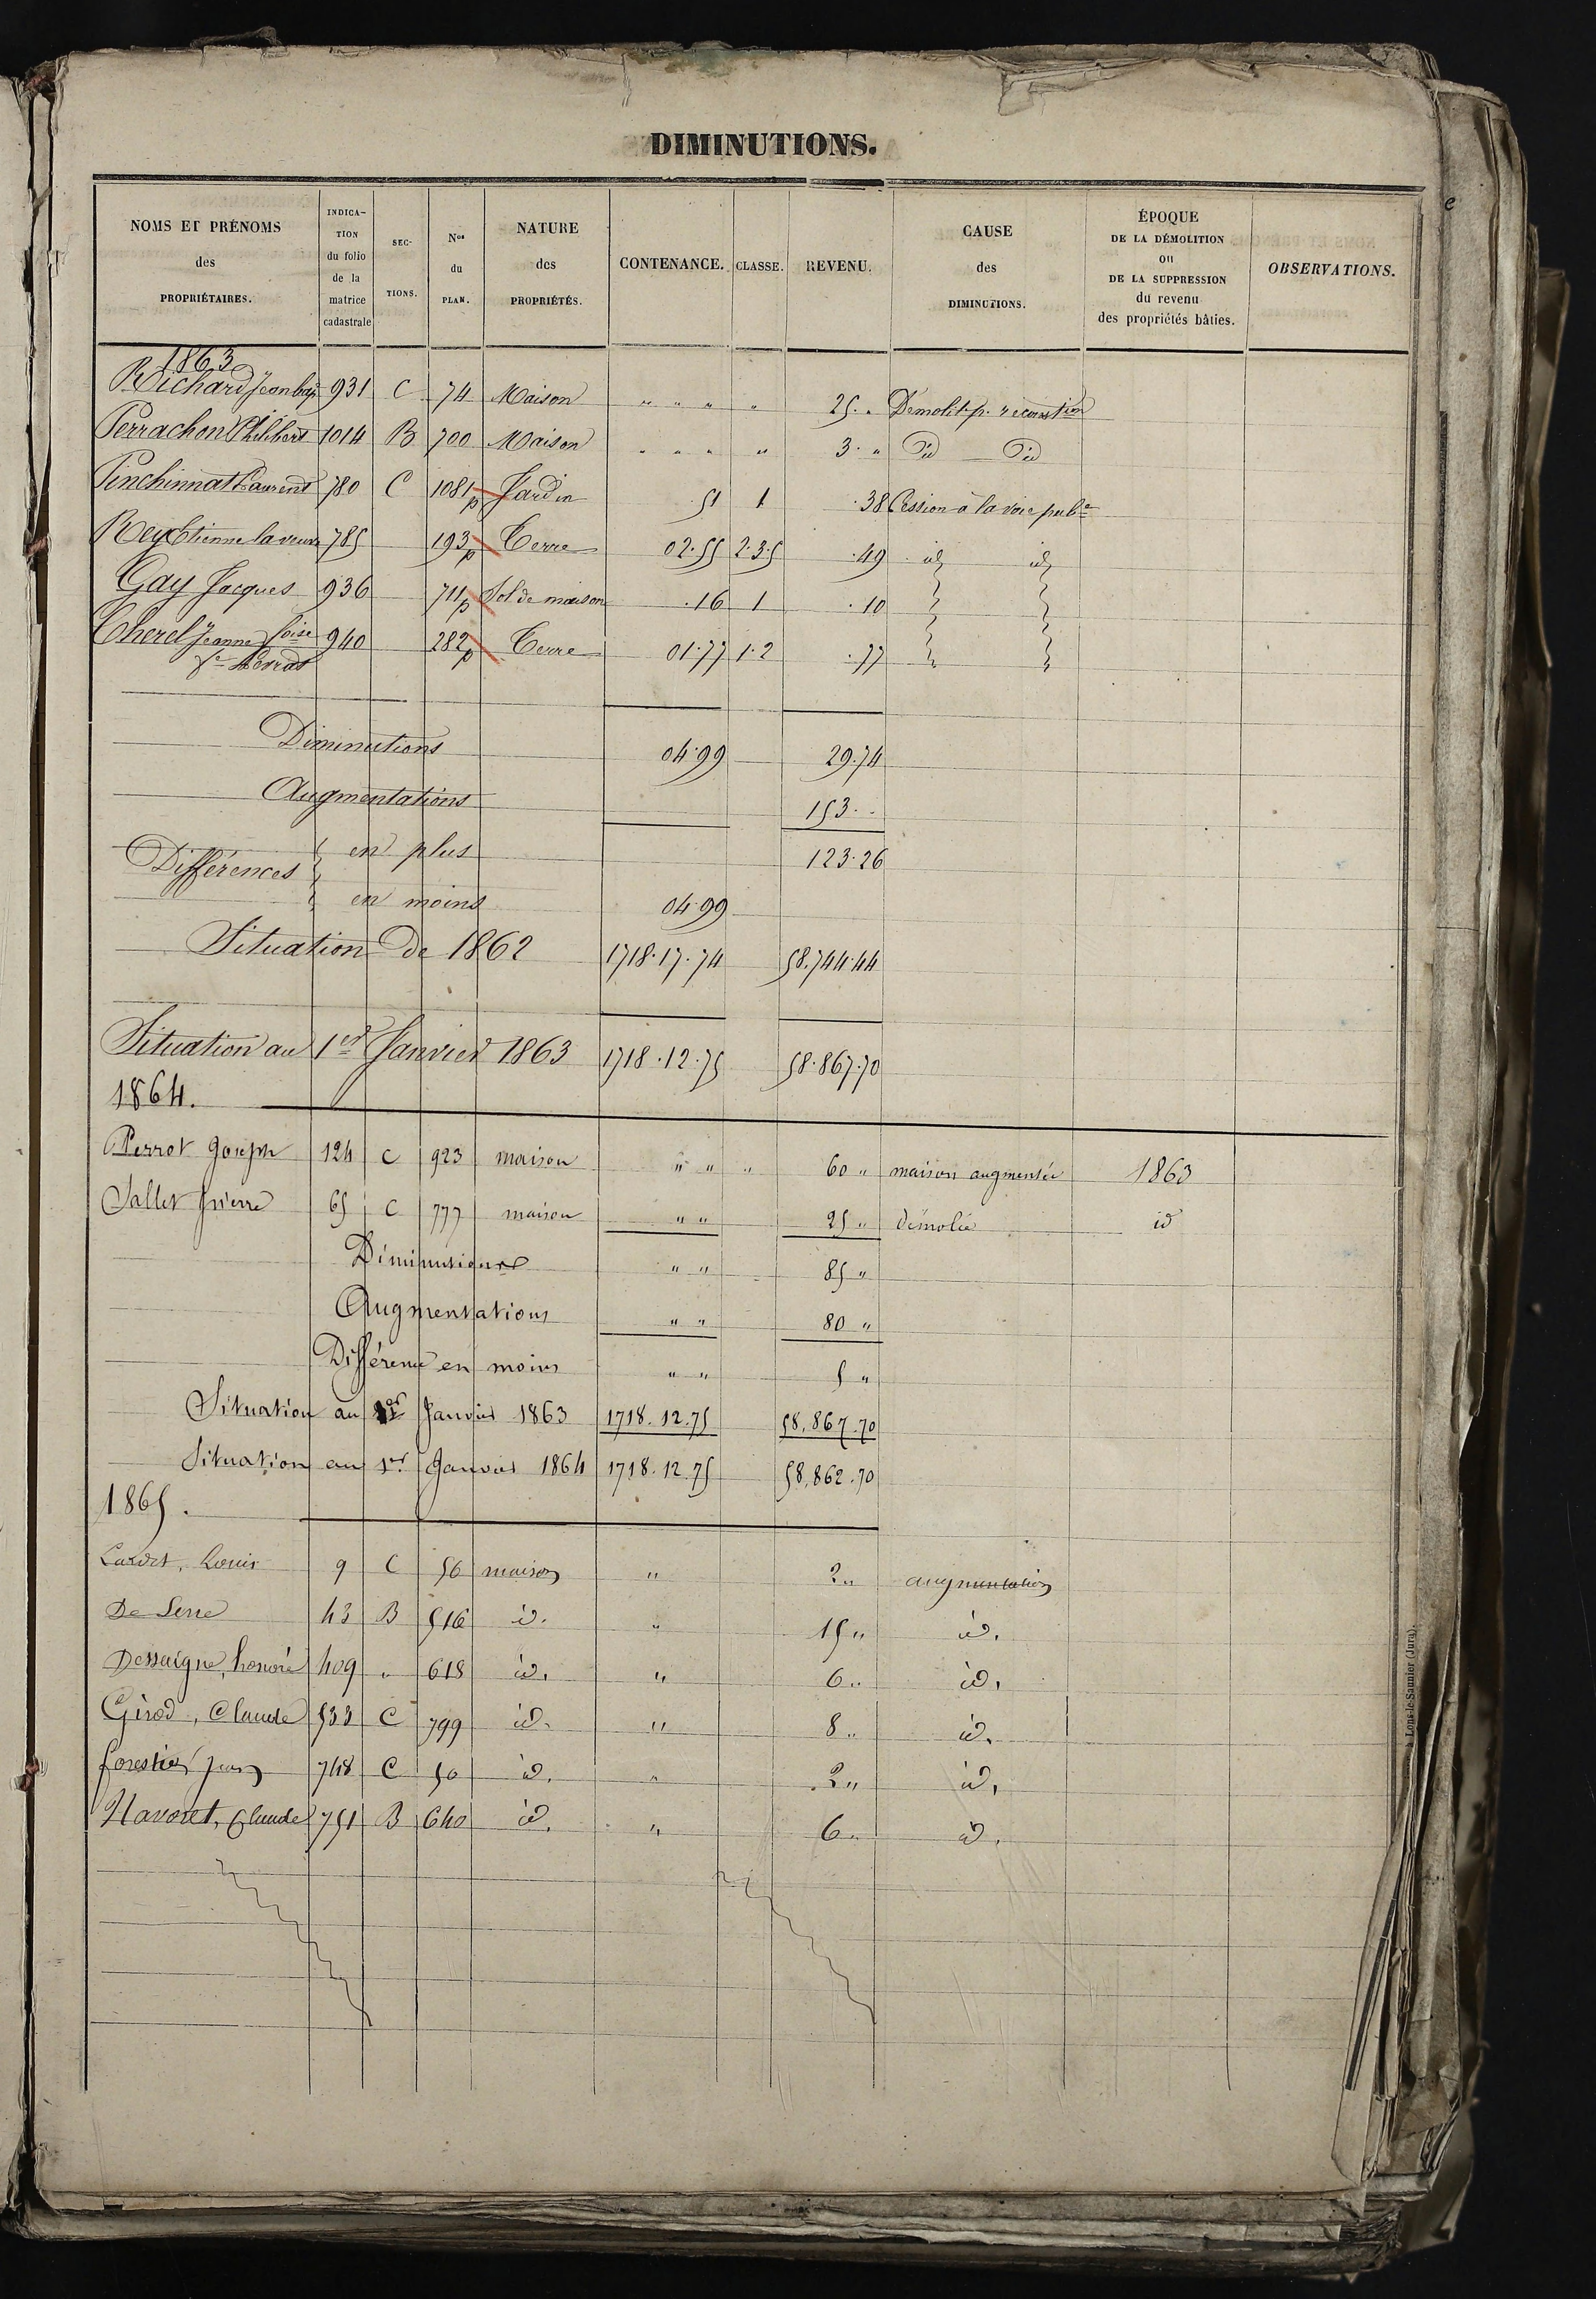 DIMINUTIONS.
NOMS ET PRÉNOMS des PROPRIÉTAIRES. INDICA-TION du folio de la matrice cadastrale SEC-TIONS. Nos du PLAN. NATURE des PROPRIÉTÉS. CONTENANCE. CLASSE. REVENU. CAUSE des DIMINUTIONS. ÉPOQUE DE LA DÉMOLITION OU DE LA SUPPRESSION du revenu des propriétés bâties. OBSERVATIONS.
1863
Richard Jean bap 931 C 74 Maison " " " " 25. " Démolit. p. reconstion
Perrachon Philibert 1014 B 700 Maison " " " " 3. " Id Id
Pinchinnat Laurent 780 C 1081 p Jardin .51 1 .38 Cession à la voie pube
Rey Etienne la veuve 785 193 p Terre 02.55 2.3.5 .49 id id
Gay Jacques 936 711 p Sol de maison .16 1 .10
Cherel Jeanne foise 940 282 p Terre 01.77 1.2 .77
fe
Diminutions 04.99 29.74
Augmentations 153. "
Différences en plus 123.26
en moins 04.99
Situation de 1862 1718.17.74 58.744.44
Situation au 1er Janvier 1863 1718.12.75 58.867.70
1864.
Perrot Joseph 124 C 923 maison " " " 60 " maison augmentée 1863
Sallet Pierre 65 C 777 maison " " 25 " démolie id
Diminutions " " 85 "
Augmentations " " 80 "
Différence en moins " " 5 "
Situation au 1er Janvier 1863 1718.12.75 58,867.70
Situation au 1er Janvier 1864 1718.12.75 58,862.70
1865.
Louis 9 C 56 maison " 2 " augmentation
De Serre 43 B 516 id. " 15 " id.
Dessaigne, honoré 409 " 618 id. " 6 " id.
Girod, Claude 533 C 799 id. " 8 " id.
forestier Jean 748 C 50 id. " 2 " id.
Navoret, Claude 751 B 640 id. " 6 " id.
Lons-le-Saunier (Jura).